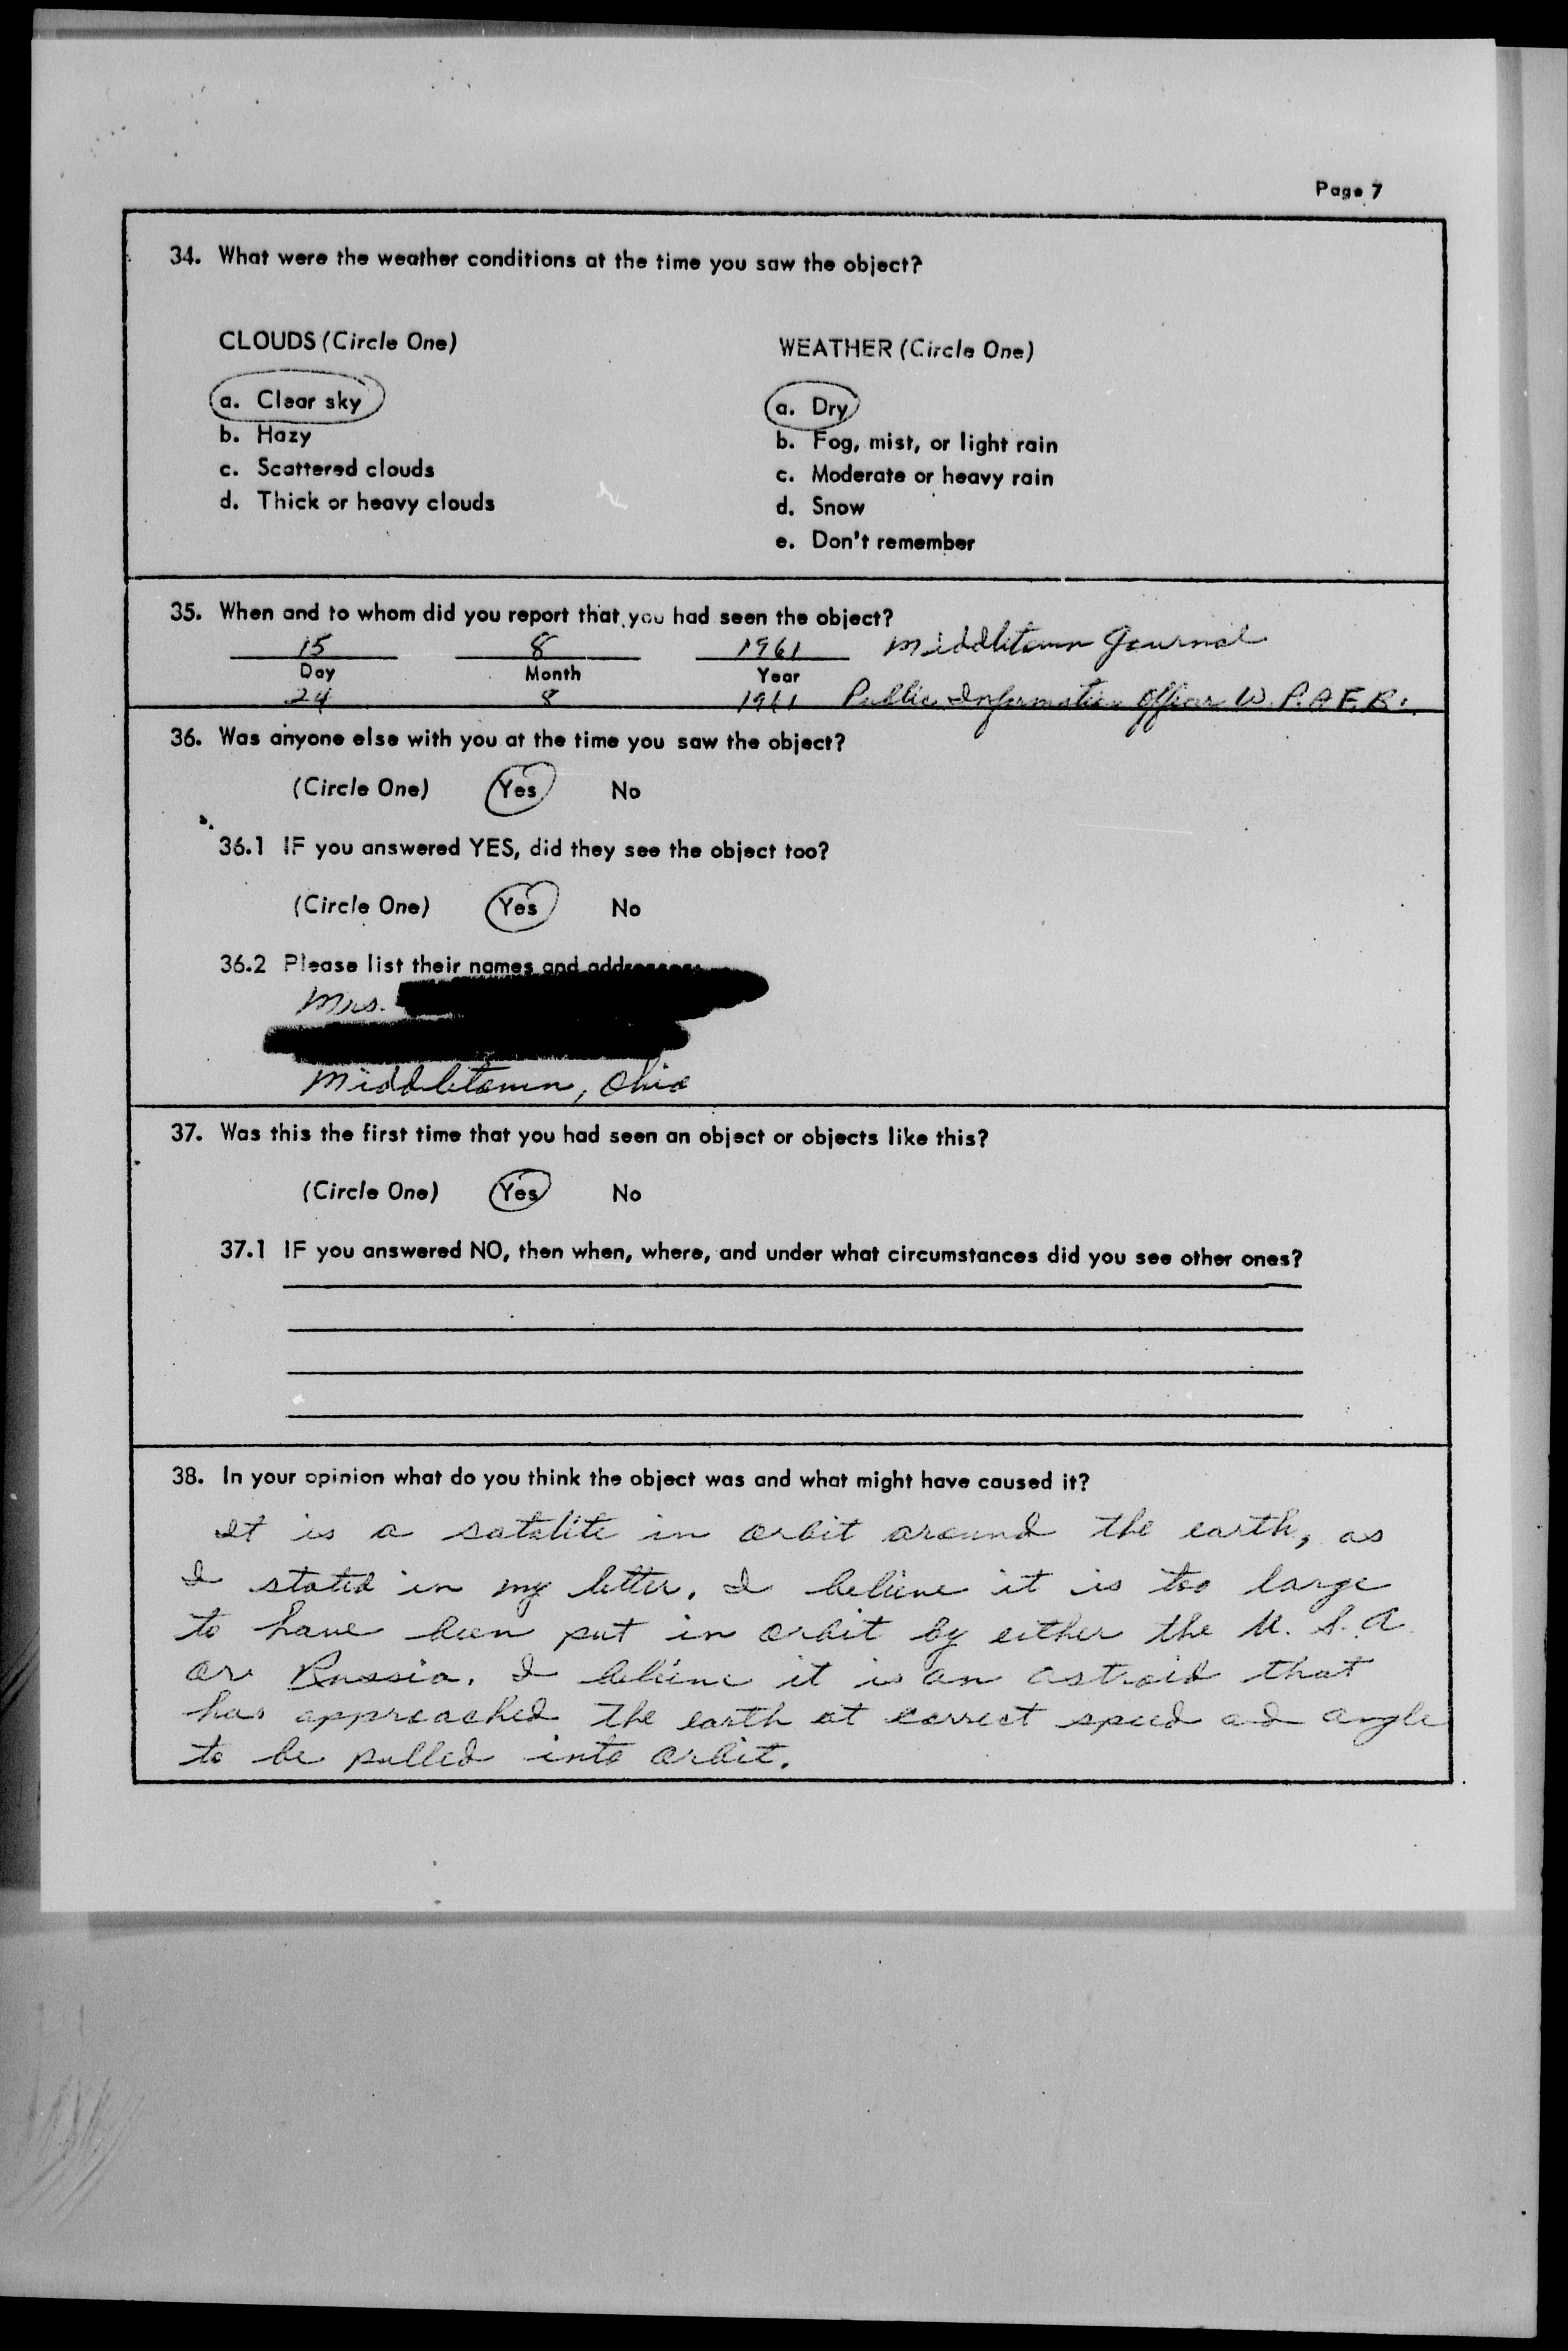 Page 7
34. What were the weather conditions at the time you saw the object?
CLOUDS (Circle One)
a. Clear sky
b. Hazy
c. Scattered clouds
d. Thick or heavy clouds
WEATHER (Circle One)
a. Dry
b. Fog, mist, or light rain
c. Moderate or heavy rain
d. Snow
e. Don't remember
35. When and to whom did you report that you had seen the object?
15 8 1961 Middletown Journal
Day Month Year
24 8 1961 Public Information Officer W.P.A.F.B.
36. Was anyone else with you at the time you saw the object?
(Circle One) Yes No
36.1 IF you answered YES, did they see the object too?
(Circle One) Yes No
36.2 Please list their names and addresses:
Mrs.
Middletown, Ohio
37. Was this the first time that you had seen an object or objects like this?
(Circle One) Yes No
37.1 IF you answered NO, then when, where, and under what circumstances did you see other ones?
38. In your opinion what do you think the object was and what might have caused it?
It is a satalite in orbit around the earth, as
I stated in my letter. I believe it is too large
to have been put in orbit by either the U.S.A.
or Russia. I believe it is an astroid that
has approached the earth at correct speed and angle
to be pulled into orbit.